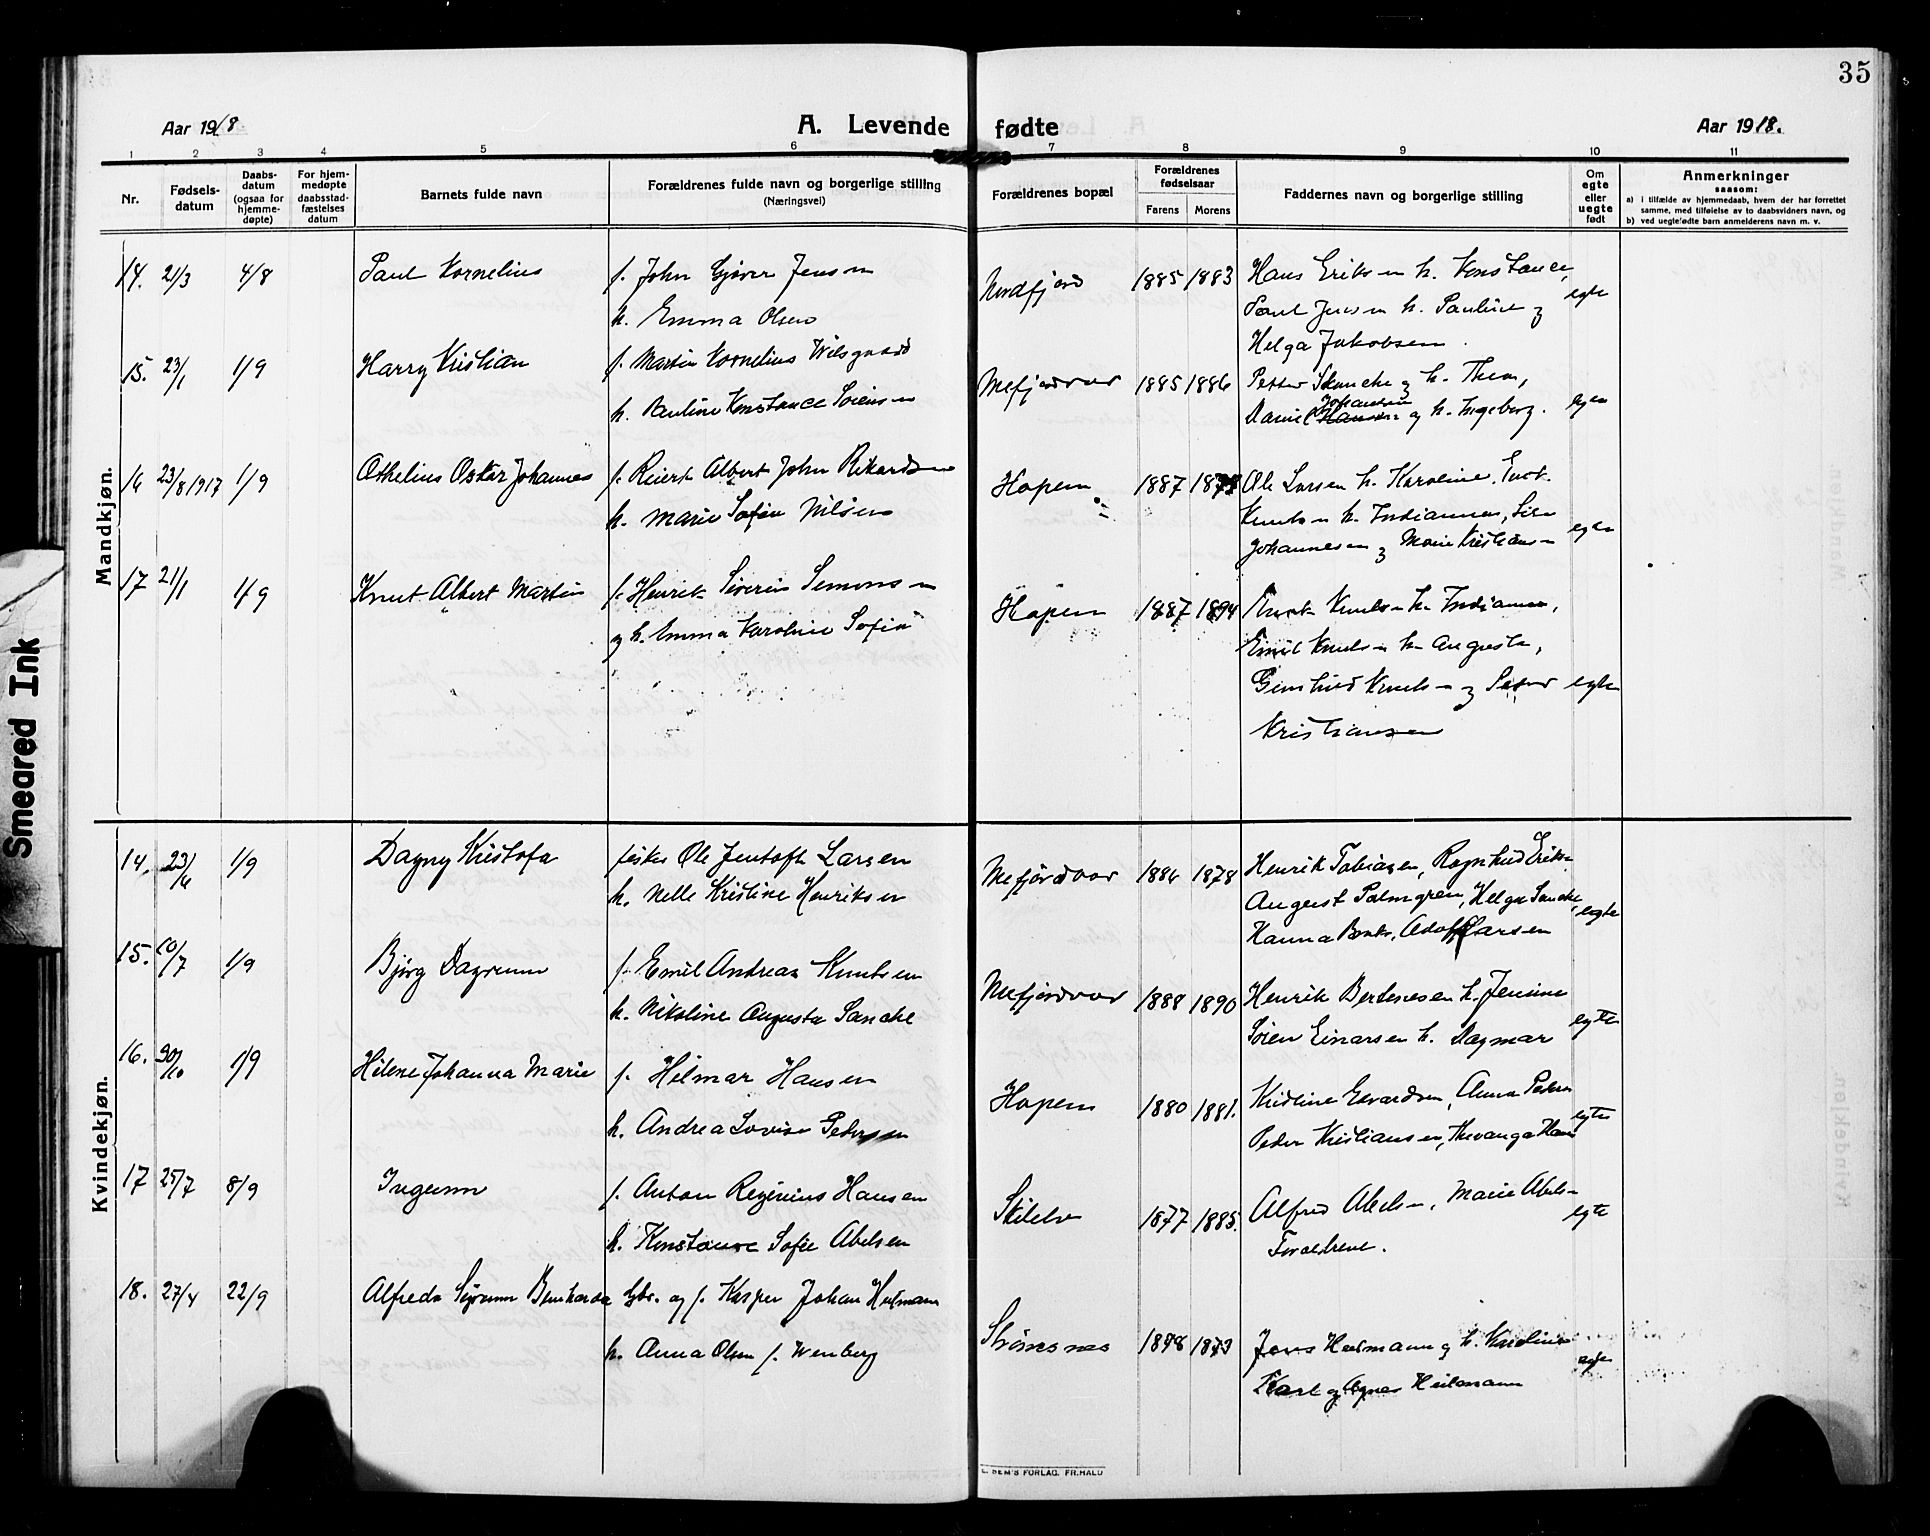 35
Aar 1918
A. Levende fødte
Aar 1918.
1 2 3 4 5 6 7 8 9 10 11
Nr.
Fødsels-
datum
Daabs-
datum
(ogsaa for
hjemme-
døpte)
For hjem-
medøpte
daabsstad-
fæstelses
datum
Barnets fulde navn
Forældrenes fulde navn og borgerlige stilling
(Næringsvei)
Forældrenes bopæl
Forældrenes
fødselsaar
Farens Morens
Faddernes navn og borgerlige stilling
Om
egte
eller
uegte
født
Anmerkninger
saasom:
a) i tilfælde av hjemmedaab, hvem der har forrettet
samme, med tilføielse av to daabsvidners navn, og
b) ved uegtefødte barn anmelderens navn m. v.
Mandkjøn.
14. 21/3 4/8 Paul Kornelius f. John Gjøver Jensen Nordfjord 1885 1883 Hans Eriksen h. Konstance,
h. Emma Olsen Paul Jensen h. Pauline og egte
Helga Jakobsen.
15. 23/1 1/9 Harry Kristian f. Martin Kornelius Wilsgaard Mefjordvær 1885 1886 Petter Skancke og h. Thea,
h. Pauline Konstance Sørensen Daniel Hansen Johansen og h. Ingeborg. egte
16 23/8 1917 1/9 Othelius Oskar Johannes f. Reiert Albert John Rikardsen Hopen 1887 Ole Larsen h. Karoline,
h. Marie Sofie Nilsen Knutsen h. Indianna,
Johannesen og Marie Kristiansen egte
17 21/1 1/9 Knut Albert Martin f. Henrik Severin Simonsen Hopen 1887 1894 Knutsen h. Indianna,
og h. Emma Karoline Sofie Emil Knutsen h. Augusta,
Knutsen og Peder egte
Kristiansen
Kvindekjøn.
14. 23/6 1/9 Dagny Kristofa fisker Ole Jentoft Larsen Mefjordvær 1886 1878 Henrik Tobiasen, Ragnhild Eriks-
h. Nelle Kristine Henriksen August Palmgren, Helga Sancke, egte
Hanna Larsen
15. 10/7 1/9 Bjørg Dagrunn f. Emil Andreas Knutsen Mefjordvær 1888 1890 Henrik Bertenesen h. Jensine
h. Nikoline Augusta Sancke Søren Einarsen h. Dagmar egte
16. 30/10 1/9 Hilene Johanna Marie f. Hilmar Hansen Hopen 1880 1881. Kristine Edvardsen, Anna
h. Andrea Lovise Pedersen Peder Kristiansen, egte
17 25/7 8/9 Ingunn f. Anton Reginius Hansen 1877 1885. Alfred Abelsen, Marie Abelsen
h. Konstance Sofie Abelsen Forældrene. egte
18. 27/4 22/9 Alfreda Sigrunn Bernharda Gbr. og f. Kasper Johan Heitmann Strømsnes
h. Anna Olsen f. Wenberg Jens Heitmann og h. Karoline egte
Karl og Agnes Heitmann
SEM'S FORLAG. FR.HALD
Smeared Ink